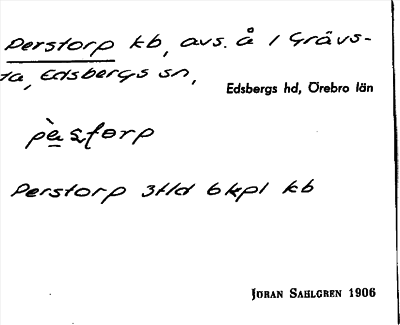 Perstorp kb, avs. å 1 Grävs-
ta, Edsbergs sn,
Edsbergs hd, Örebro län
pàstorp
Perstorp 3tld 6kpl kb
Jöran Sahlgren 1906